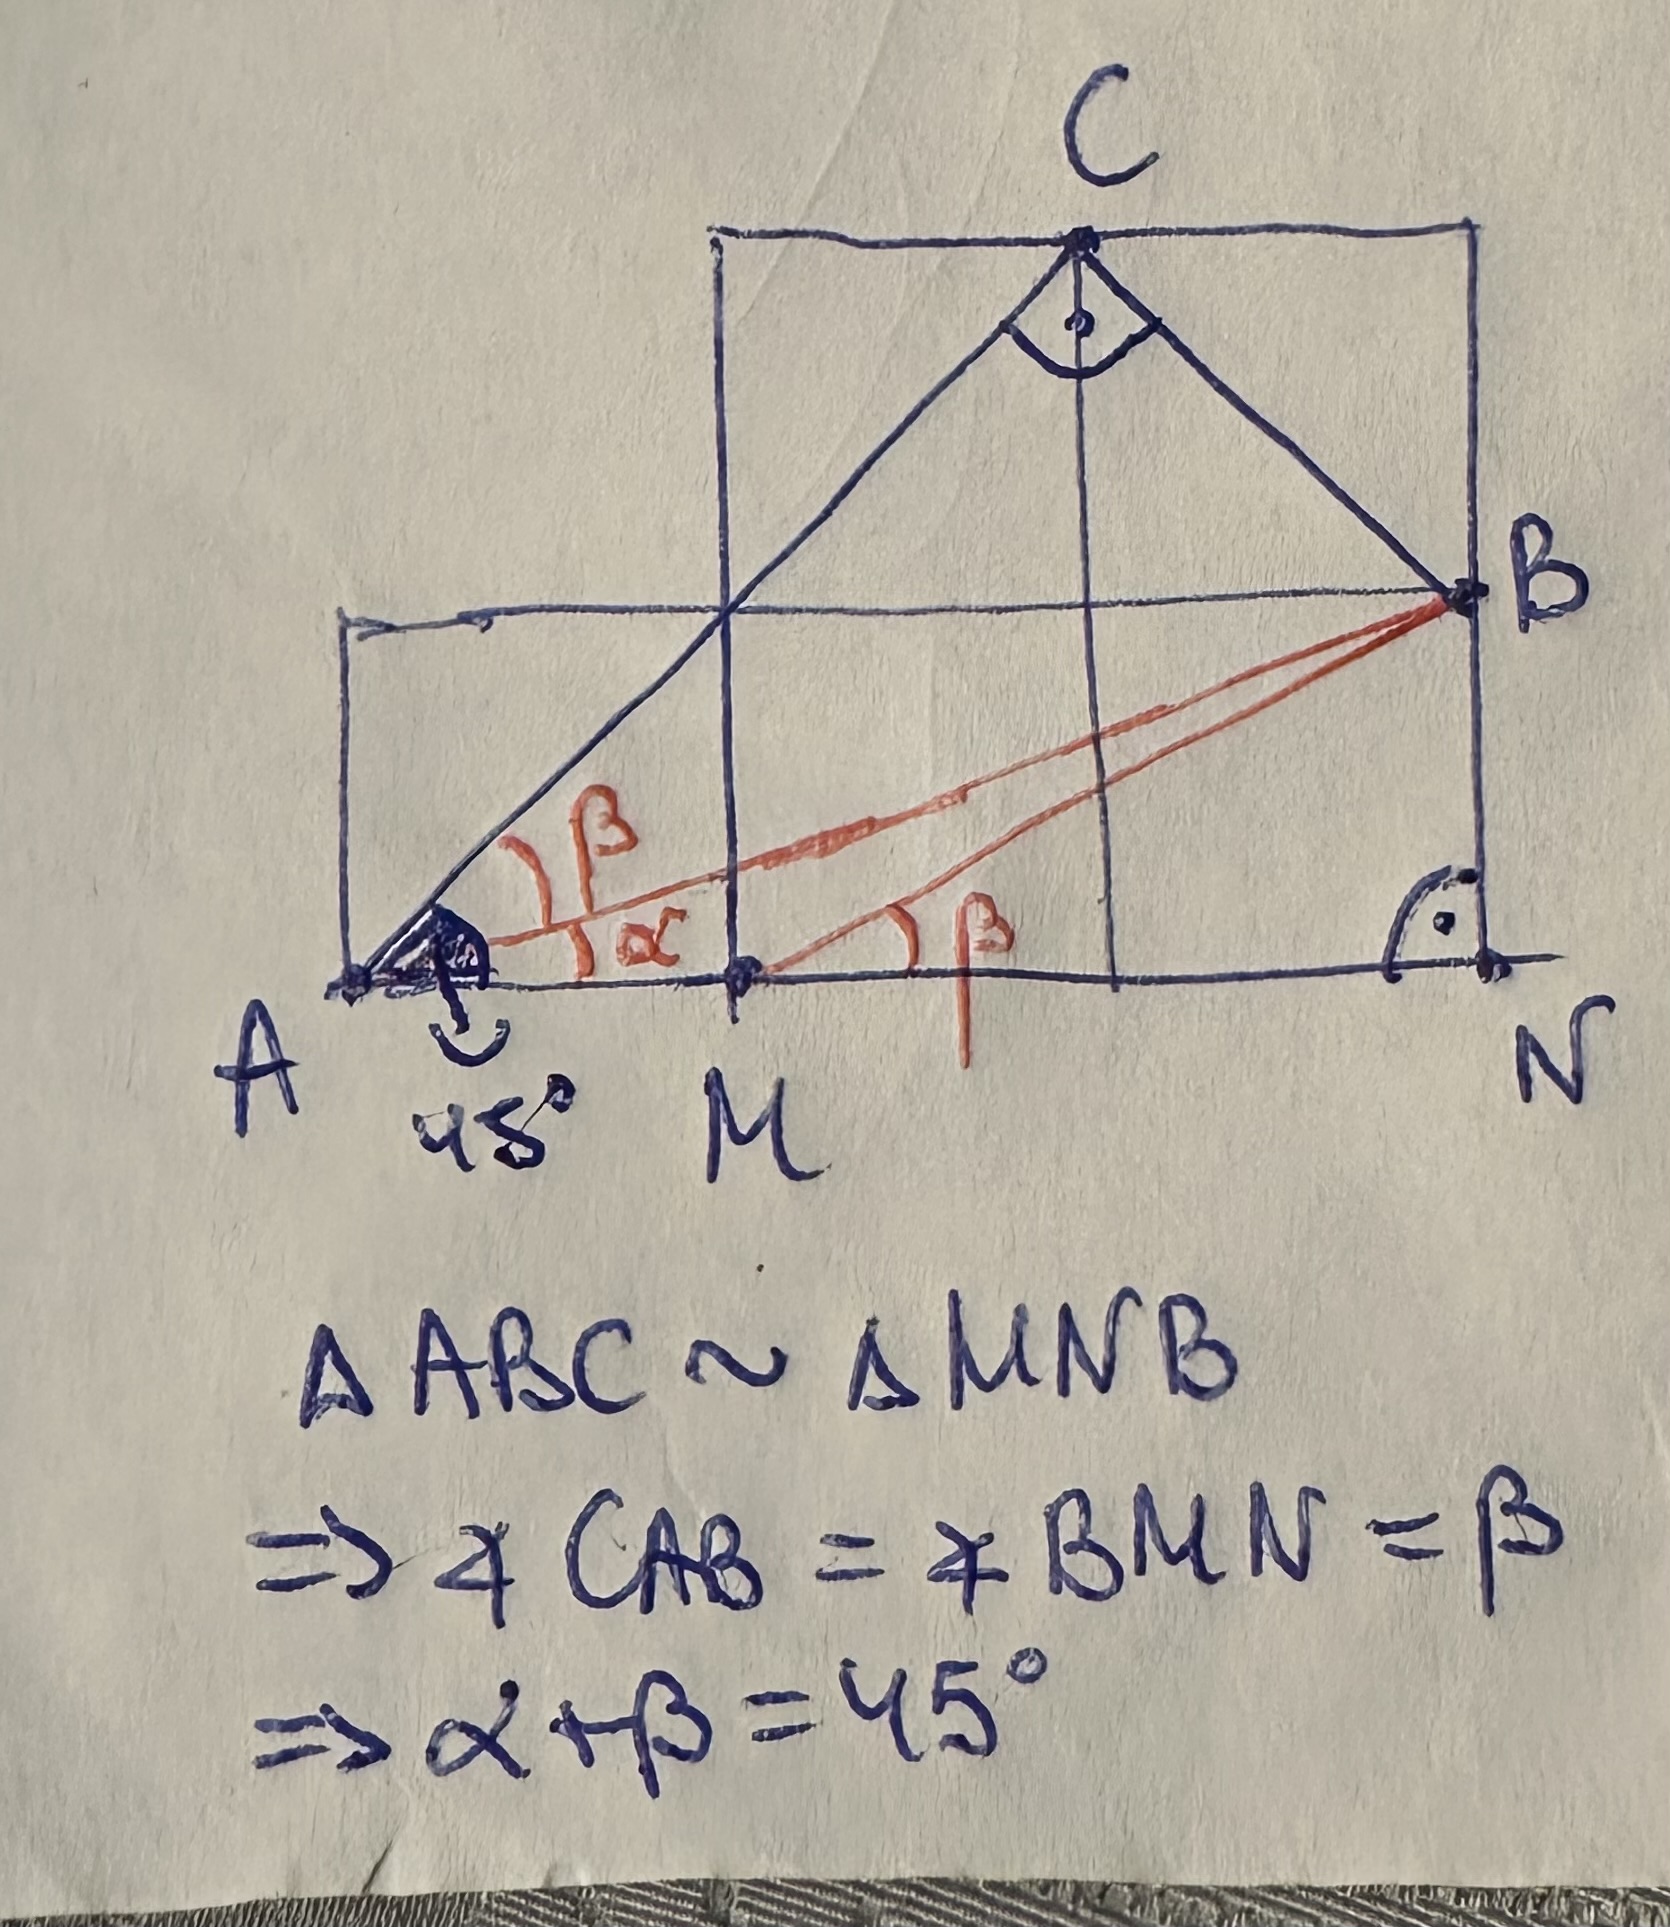 C
B
β
α
β
A
M
N
45°
Δ ABC ~ Δ MNB
=> ∡ CAB = ∡ BMN = β
=> α+β = 45°